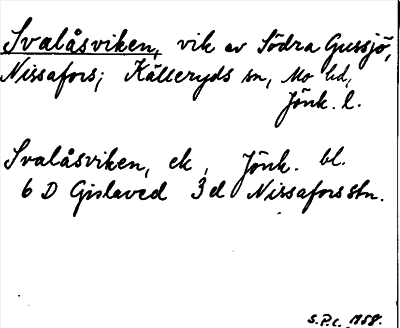 Svalåsviken, vik av Södra Gussjö,
Nissafors; Källeryds sn, Mo hd,
Jönk. l.
Svalåsviken, ek, Jönk. bl.
6 D Gislaved 3 d Nissafors stn.
S.P.C. 1958.